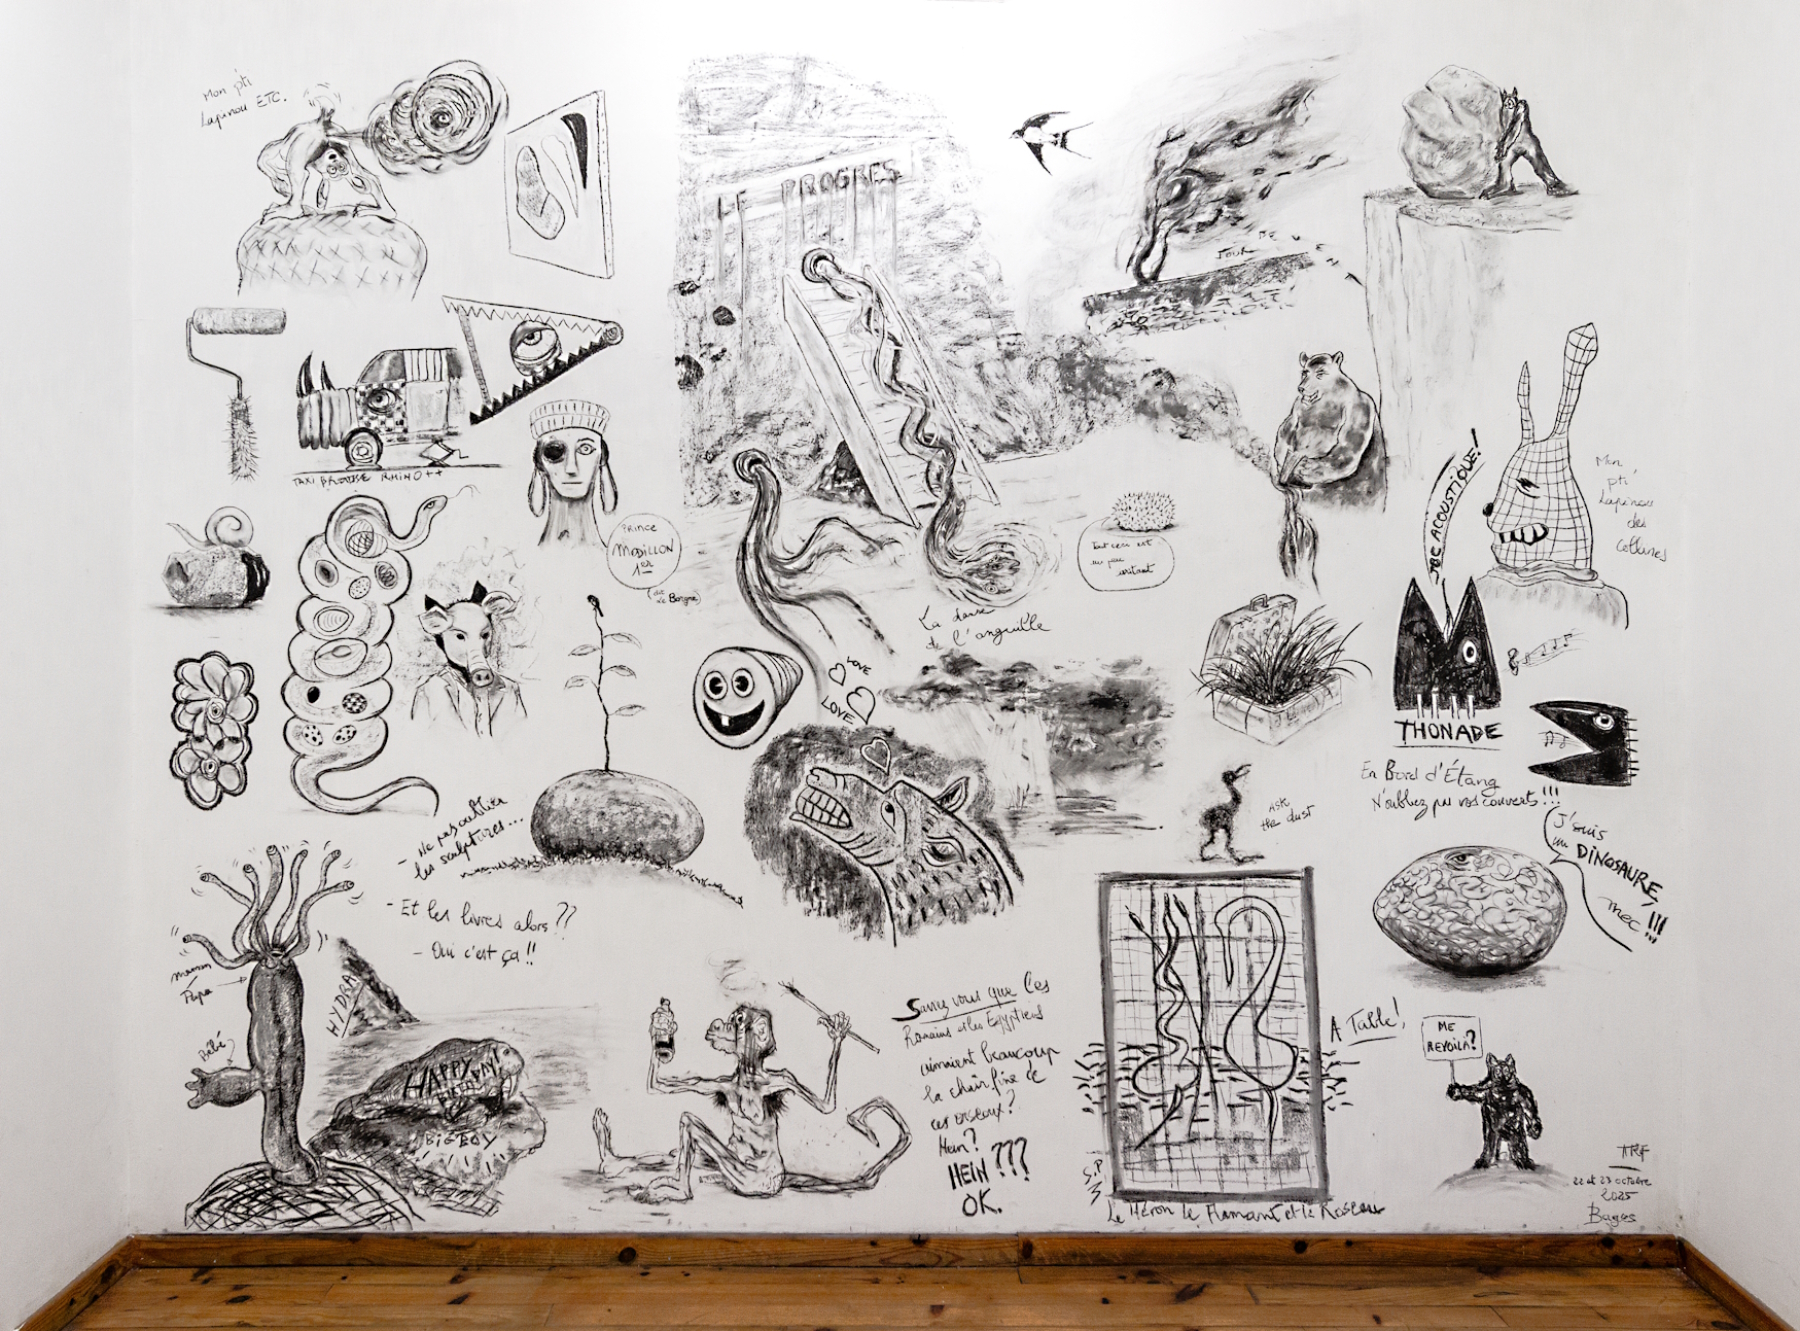 Mon pti
Lapinou ETC.
LE PROGRES
JOUR DE VEN
TAXI BROUSSE RHINO ++
PRINCE
MODILLON
1er
(dit
Le Borgne)
Tout ceci est
un peu
irritant
La danse
de l'anguille
JazzACOUSTIQUE!
Mon
pti
Lapinou
des
Collines
LOVE
LOVE
THONADE
En Bord d'Étang
N'oubliez pas vos couverts !!!
ASK
the dust
J'suis
un DINOSAURE,
mec !!!
- Ne pas oublier
les sculptures...
- Et les livres alors ??
- Oui c'est ça !!
maman
Papa
Bébé
HYDRA
HAPPY
BIRTHDAY!
BIG BOY
Savez vous que les
Romains et les Egyptiens
aimaient beaucoup
la chair fine de
ces oiseaux ?
Hein ?
HEIN ???
OK.
A Table !
S.P
3
Le Héron le Flamant et le Roseau
ME
REVOILA ?
TRF
22 et 23 octobre
2025
Bages